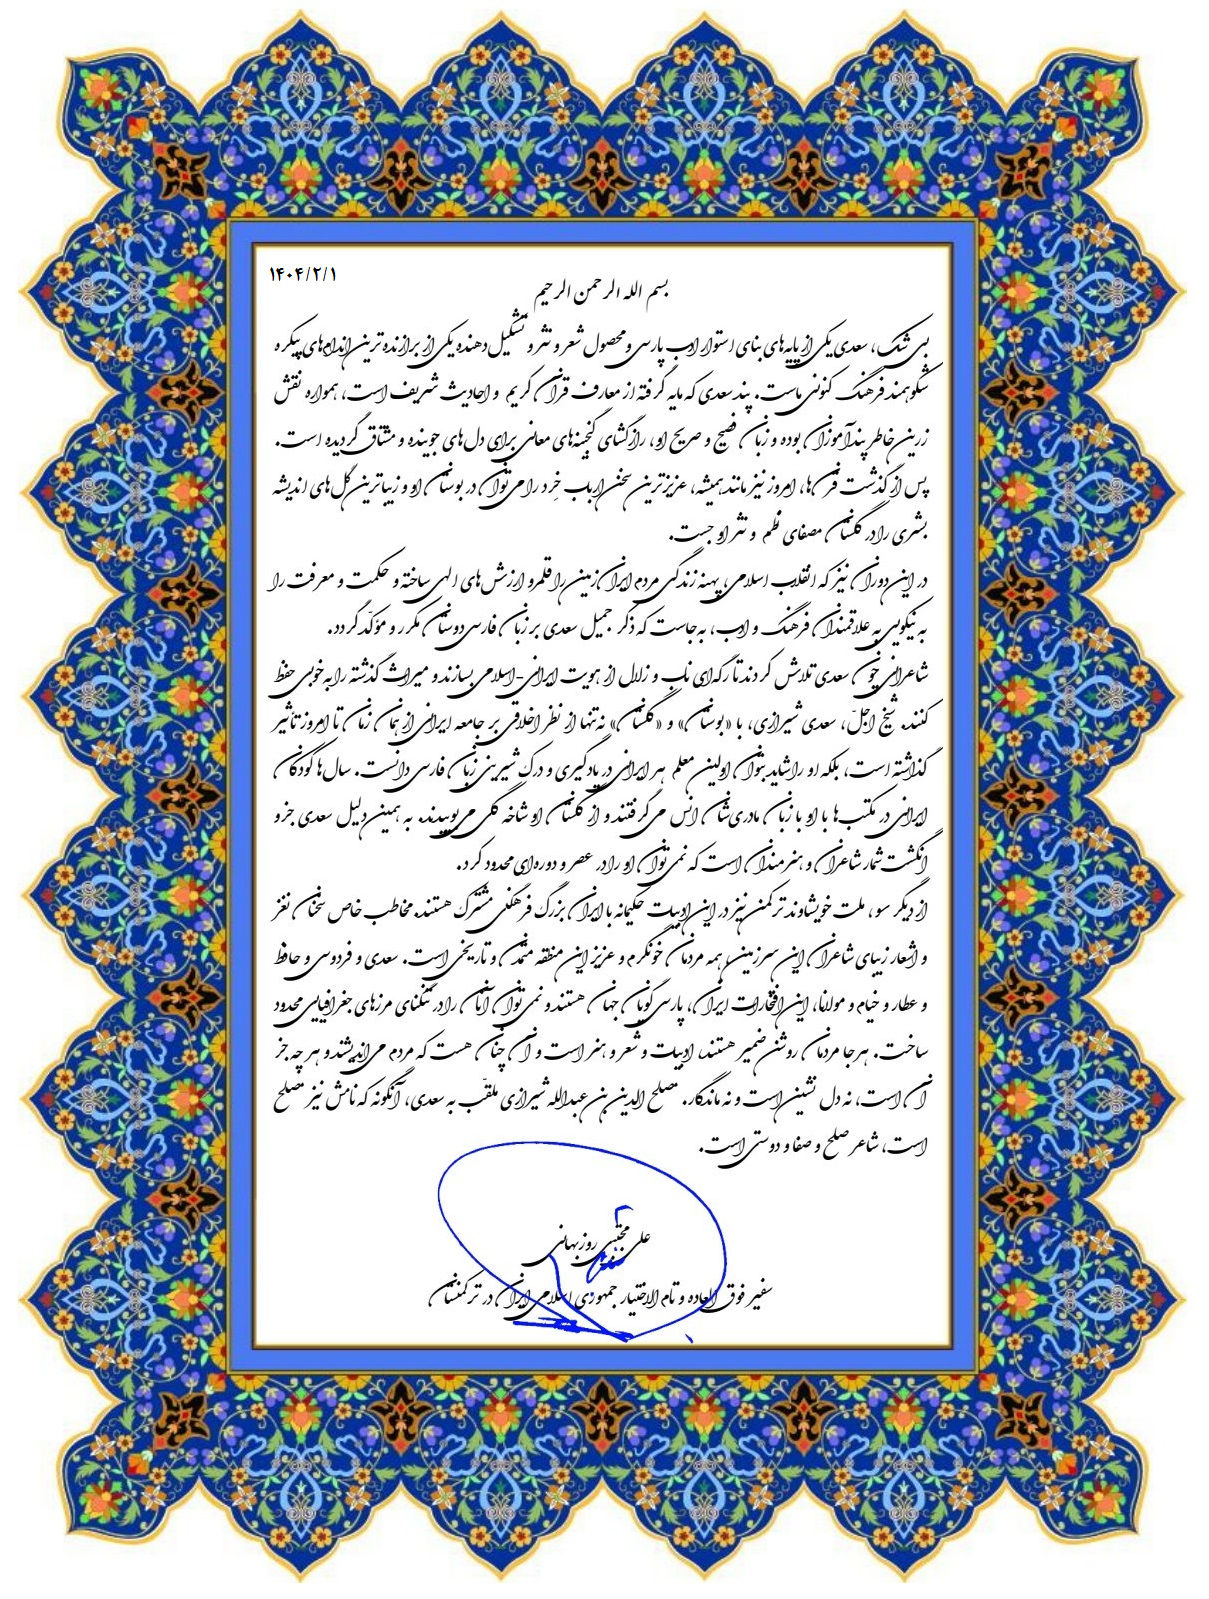 ۱۴۰۴/۲/۱
بسم الله الرحمن الرحیم
بی شک، سعدی یکی از پایه های بنای استوار ادب پارسی و محصول شعر و نثر و تشکیل دهنده یکی از برازنده ترین اندام های پیکره
شکوهمند فرهنگ کنونی ماست. پند سعدی که مایه گرفته از معارف قرآن کریم و احادیث شریف است، همواره نقش
زرین خاطر پندآموزان بوده و زبان فصیح و صریح او، رازگشای گنجینه های معانی برای دل های جوینده و مشتاق گردیده است.
پس از گذشت قرن ها، امروز نیز مانند همیشه، عزیزترین سخن ارباب خِرد را می توان در بوستان او و زیباترین گل های اندیشه
بشری را در گلستان مصفای نظم و نثر او جست.
در این دوران نیز که انقلاب اسلامی، پهنه زندگی مردم ایران زمین را قلمرو ارزش های الهی ساخته و حکمت و معرفت را
به نیکویی به علاقمندان فرهنگ و ادب، به جاست که ذکر جمیل سعدی بر زبان فارسی دوستان مکرر و مؤکّد گردد.
شاعرانی چون سعدی تلاش کردند تا رگه ای ناب و زلال از هویت ایرانی-اسلامی بسازند و میراث گذشته را به خوبی حفظ
کنند. شیخ اجلّ، سعدی شیرازی، با «بوستان» و «گلستان» نه تنها از نظر اخلاقی بر جامعه ایرانی از همان زمان تا امروز تأثیر
گذاشته است، بلکه او را شاید بتوان اولین معلم هر ایرانی در یادگیری و درک شیرینی زبان فارسی دانست. سال ها کودکان
ایرانی در مکتب ها با او با زبان مادری شان انس می گرفتند و از گلستان او شاخه گلی می بوییدند. به همین دلیل سعدی جزو
انگشت شمار شاعران و هنرمندان است که نمی توان او را در عصر و دوره ای محدود کرد.
از دیگر سو، ملت خویشاوند ترکمن نیز در این ادبیات حکیمانه با ایران بزرگ فرهنگی مشترک هستند. مخاطب خاص سخنان نغز
و اشعار زیبای شاعران این سرزمین، همه مردمان خونگرم و عزیز این منطقه متمدن و تاریخی است. سعدی و فردوسی و حافظ
و عطار و خیام و مولانا، این افتخارات ایران، پارسی گویان جهان هستند و نمی توان آنان را در تنگنای مرزهای جغرافیایی محدود
ساخت. هر جا مردمان روشن ضمیر هستند، ادبیات و شعر و هنر است و آن چنان هست که مردم می اندیشند و هر چه جز
آن است، نه دل نشین است و نه ماندگار. مصلح الدین بن عبدالله شیرازی ملقّب به سعدی، آنگونه که نامش نیز مصلح
است، شاعر صلح و صفا و دوستی است.
علی مجتبی روزبهانی
سفیر فوق العاده و تام الاختیار جمهوری اسلامی ایران در ترکمنستان